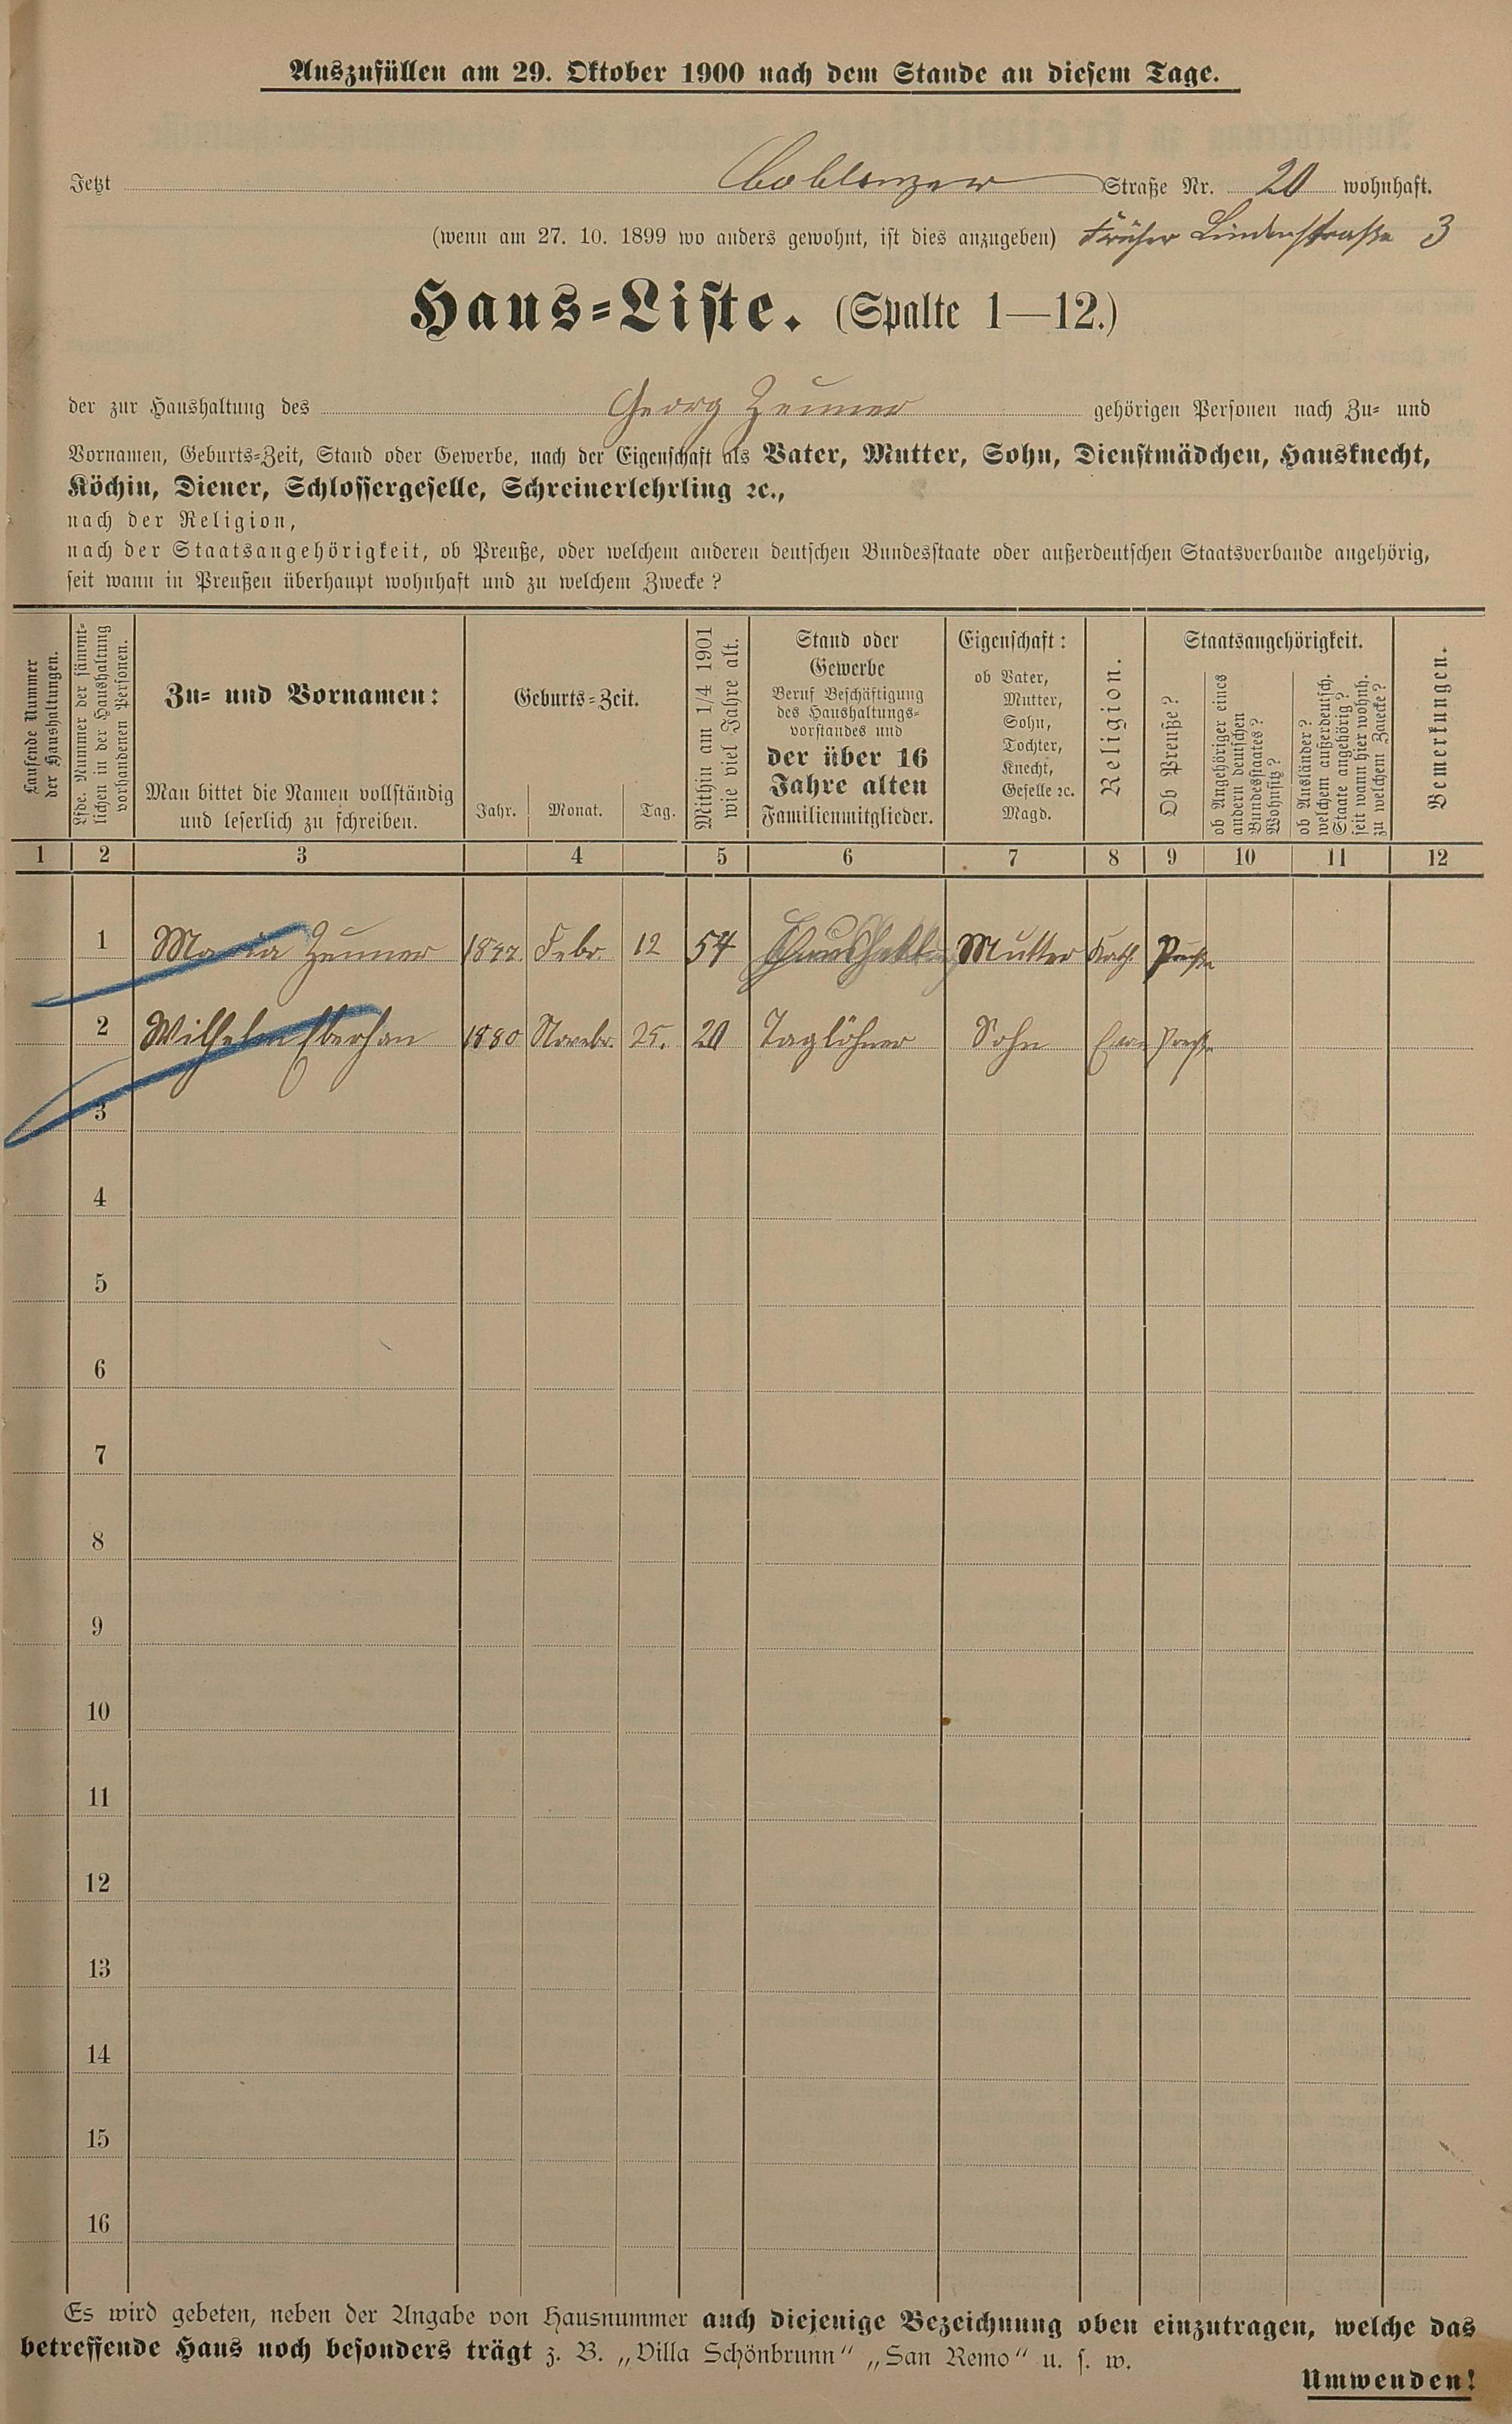 Auszufüllen am 29. Oktober 1900 nach dem Stande an diesem Tage.
Jetzt Coblenzer Straße Nr. 20 wohnhaft.
(wenn am 27. 10. 1899 wo anders gewohnt, ist dies anzugeben) Früher Lindenstraße 3
Haus-Liste. (Spalte 1—12.)
der zur Haushaltung des Georg Zeuner gehörigen Personen nach Zu- und
Vornamen, Geburts-Zeit, Stand oder Gewerbe, nach der Eigenschaft als Vater, Mutter, Sohn, Dienstmädchen, Hausknecht,
Köchin, Diener, Schlossergeselle, Schreinerlehrling ꝛc.,
nach der Religion,
nach der Staatsangehörigkeit, ob Preuße, oder welchem anderen deutschen Bundesstaate oder außerdeutschen Staatsverbande angehörig,
seit wann in Preußen überhaupt wohnhaft und zu welchem Zwecke?
Laufende Nummer
der Haushaltungen.
Lfde. Nummer der sämmt-
lichen in der Haushaltung
vorhandenen Personen.
Zu- und Vornamen:
Man bittet die Namen vollständig
und leserlich zu schreiben.
Geburts-Zeit.
Jahr. Monat. Tag.
Mithin am 1/4 1901
wie viel Jahre alt.
Stand oder
Gewerbe
Beruf Beschäftigung
des Haushaltungs-
vorstandes und
der über 16
Jahre alten
Familienmitglieder.
Eigenschaft:
ob Vater,
Mutter,
Sohn,
Tochter,
Knecht,
Geselle ꝛc.
Magd.
Religion.
Staatsangehörigkeit.
Ob Preuße?
ob Angehöriger eines
andern deutschen
Bundesstaates?
Wohnsitz?
ob Ausländer?
welchem außerdeutsch.
Staate angehörig?
seit wann hier wohnh.
zu welchem Zwecke?
Bemerkungen.
1 2 3 4 5 6 7 8 9 10 11 12
1 Maria Zeuner Febr. 12 54 Mutter Kath
2 Wilhelm 1880 Novebr. 25. 20 Taglöhner Sohn
3
4
5
6
7
8
9
10
11
12
13
14
15
16
Es wird gebeten, neben der Angabe von Hausnummer auch diejenige Bezeichnung oben einzutragen, welche das
betreffende Haus noch besonders trägt z. B. „Villa Schönbrunn“ „San Remo“ u. s. w.
Umwenden!